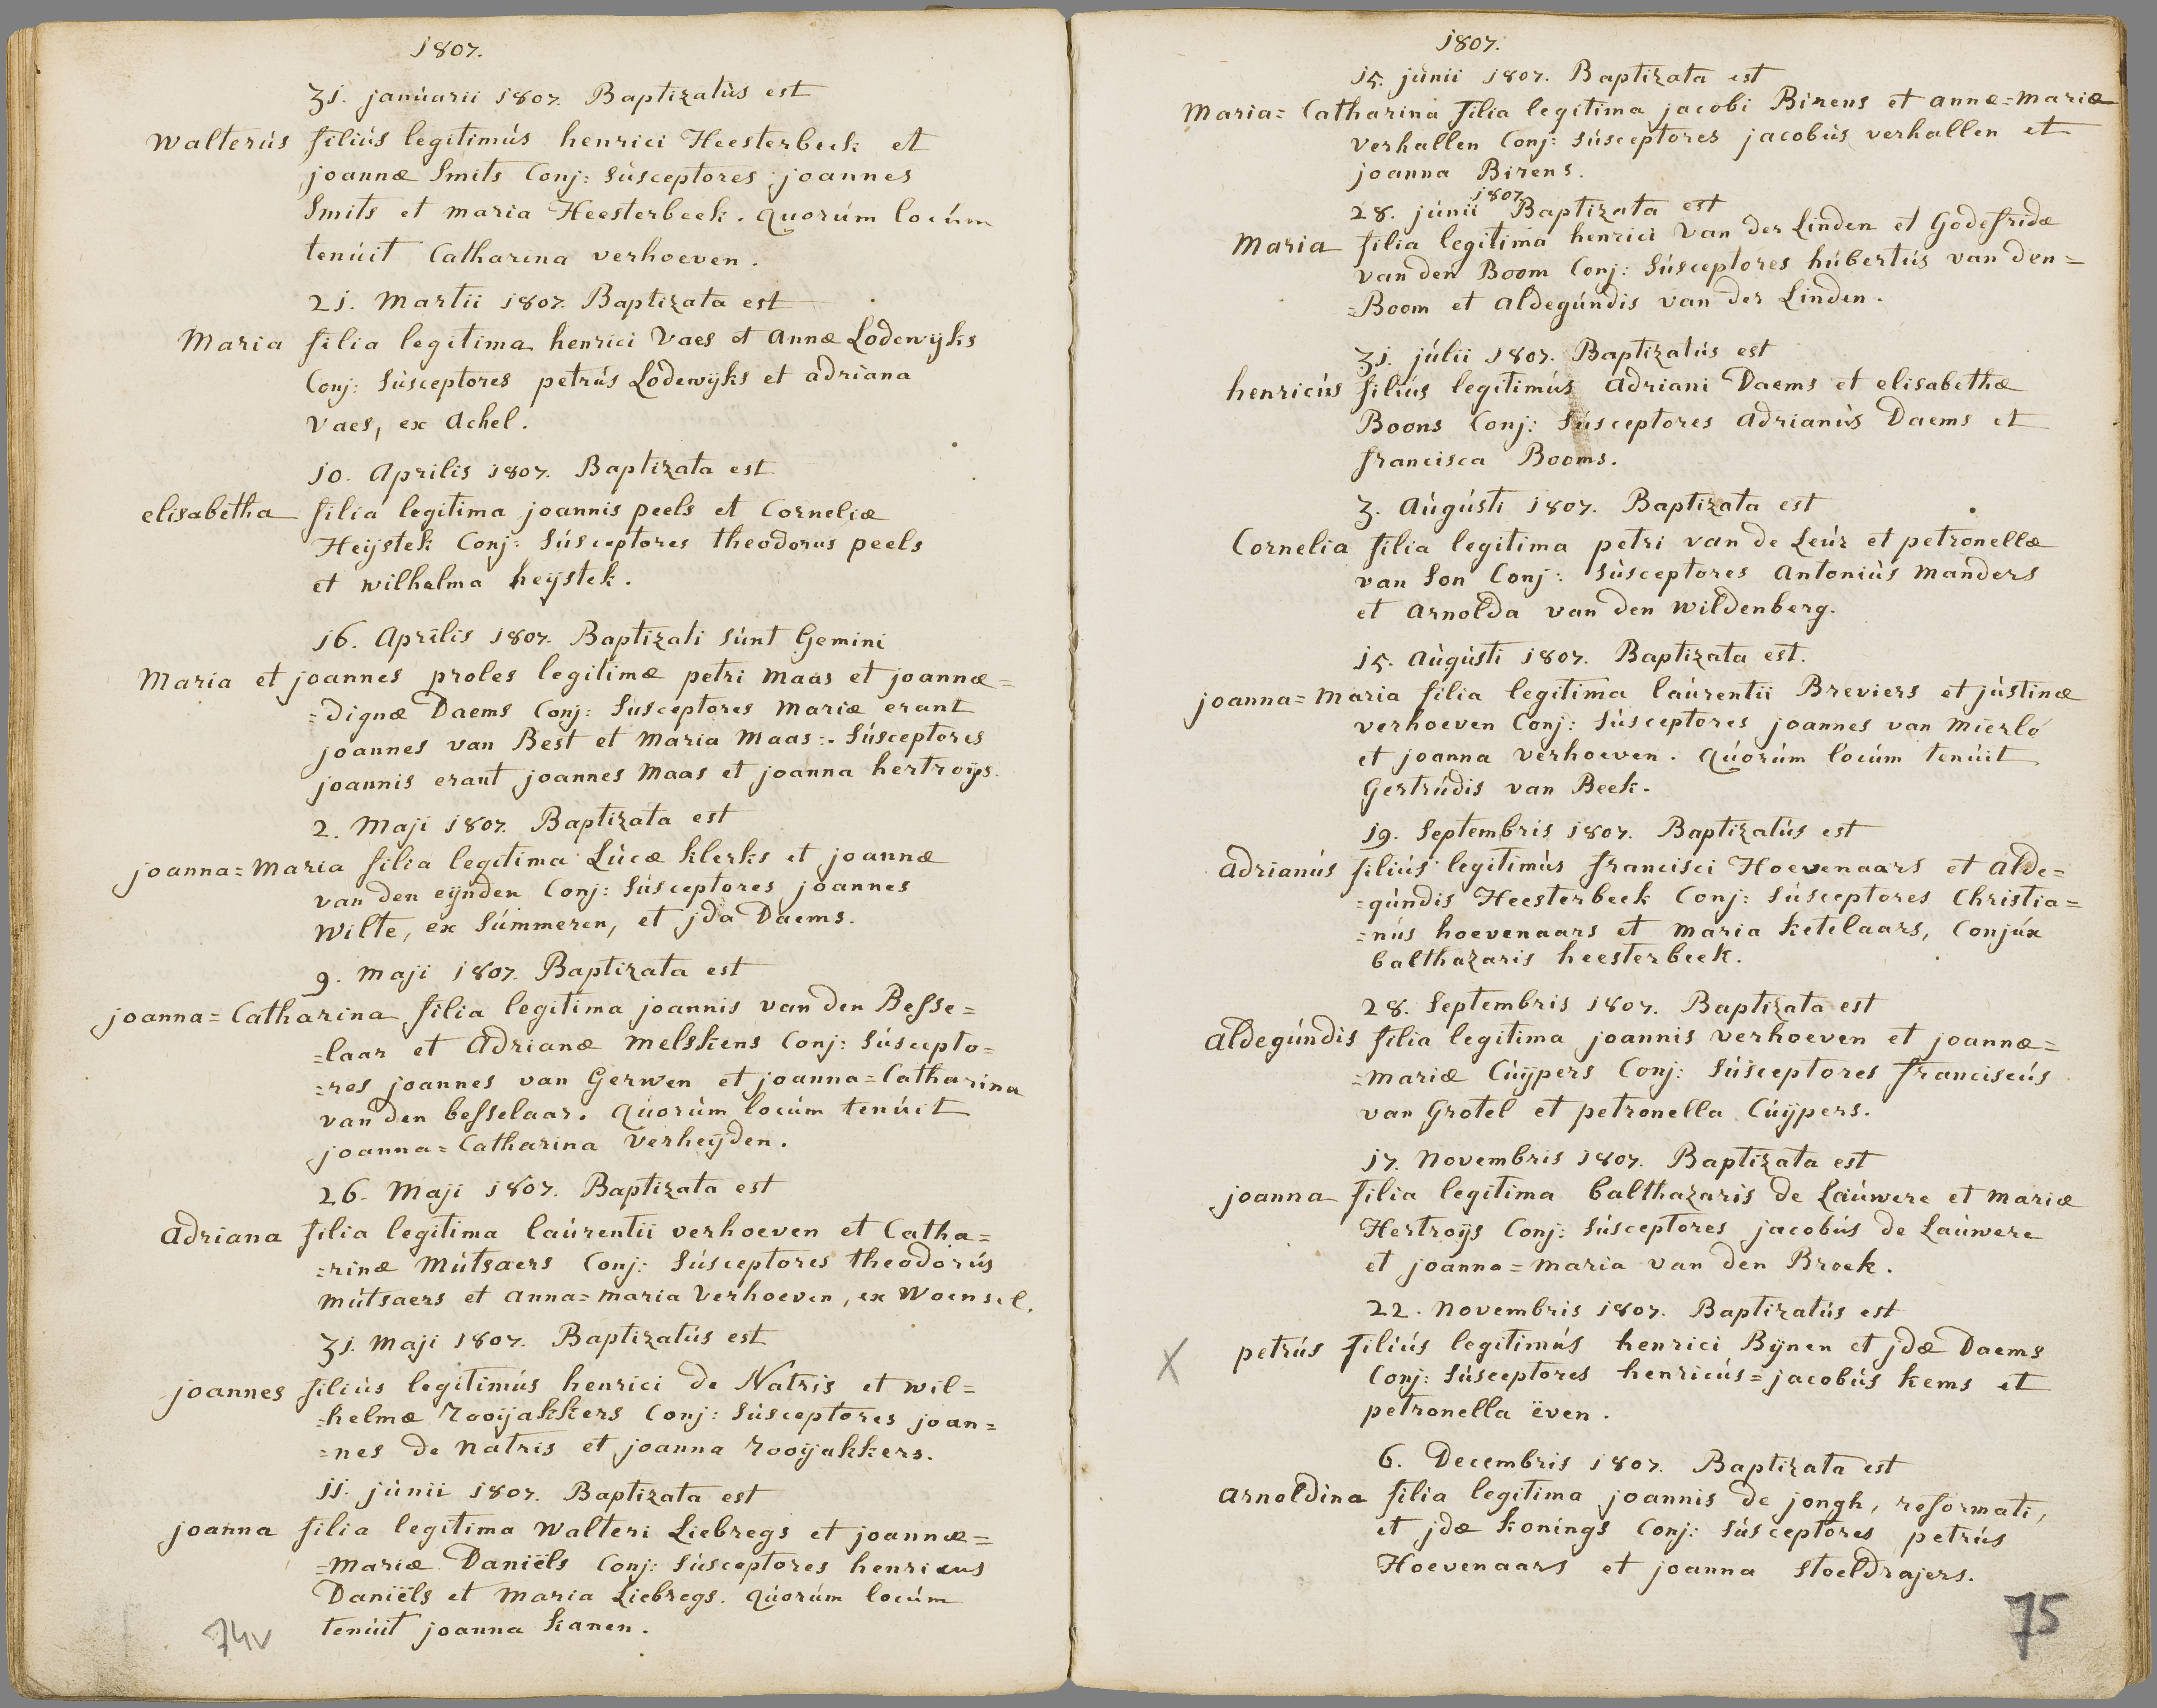 1807.
31. januarii 1807. Baptizatús est
Walterús filiús legitimús henrici Heesterbeek et
joannæ Smits Conj: Súsceptores joannes
Smits et maria Heesterbeek. quorúm locúm
tenúit Catharina verhoeven.
21. Martii 1807. Baptizata est
Maria filia legitima henrici Vaes et Annæ Lodewijks
Conj: Súsceptores petrús Lodewijks et adriana
Vaes, ex Achel.
10. Aprilis 1807. Baptizata est
elisabetha filia legitima joannis peels et Corneliæ
Heijstek Conj: Súsceptores theodorus peels
et wilhelma heijstek.
16. Aprilis 1807. Baptizati súnt Gemini
Maria et joannes proles legitimæ petri Maas et joannæ=
=dignæ Daems Conj: Susceptores Mariæ erant
joannes van Best et Maria Maas:. Súsceptores
joannis erant joannes Maas et joanna hertroijs.
2. Maji 1807. Baptizata est
joanna=Maria filia legitima Lúcæ klerks et joannæ
van den eijnden Conj: Súsceptores joannes
Wilte, ex Súmmeren, et jda Daems.
9. Maji 1807. Baptizata est
joanna=Catharina filia legitima joannis van den Besse=
=laar et Adrianæ Melskens Conj: Súscepto=
=res joannes van Gerwen et joanna=Catharina
van den besselaar. quorúm locúm tenúit
joanna=Catharina Verheijden.
26. Maji 1807. Baptizata est
Adriana filia legitima laúrentii verhoeven et Catha=
=rinæ Mútsaers Conj: Súsceptores theodorús
Mútsaers et anna=maria Verhoeven, ex Woensel.
31. Maji 1807. Baptizatús est
joannes filiús legitimús henrici de Natris et wil=
=helmæ rooijakkers Conj: Súsceptores joan=
=nes de Natris et joanna rooijakkers.
11. júnii 1807. Baptizata est
joanna filia legitima Walteri Liebregs et joannæ=
=Mariæ Daniëls Conj: Súsceptores henricus
Daniëls et Maria Liebregs. quorúm locúm
tenúit joanna kanen.
74v
1807.
15. júnii 1807. Baptizata est
Maria=Catharina filia legitima jacobi Birens et annæ=Mariæ
verhallen Conj: Súsceptores jacobús verhallen et
joanna Birens.
1807.
28. júnii Baptizata est
Maria filia legitima henrici Van der Linden et Godefridæ
van den Boom Conj: Súsceptores húbertús van den=
=Boom et aldegúndis van der Linden.
31. júlii 1807. Baptizatús est
henricús filiús legitimús Adriani Daems et elisabethæ
Boons Conj: Súsceptores Adrianús Daems et
francisca Booms.
3. Aúgústi 1807. Baptizata est
Cornelia filia legitima petri van de Leúr et petronellæ
van Son Conj: Súsceptores Antoniús Manders
et Arnolda van den Wildenberg.
15. Aúgústi 1807. Baptizata est.
joanna=Maria filia legitima laúrentii Breviers et jústinæ
verhoeven Conj: Súsceptores joannes van Mierlo
et joanna verhoeven. quorúm locúm tenúit
Gertrúdis van Beek.
19. Septembris 1807. Baptizatús est
Adrianús filiús legitimús francisci Hoevenaars et Alde=
=gúndis Heesterbeek Conj: Súsceptores Christia=
=nús hoevenaars et Maria ketelaars, Conjúx
balthazaris heesterbeek.
28. Septembris 1807. Baptizata est
Aldegúndis filia legitima joannis verhoeven et joannæ=
=Mariæ Cúijpers Conj: Súsceptores franciscús
van Grotel et petronella Cúijpers.
17. Novembris 1807. Baptizata est
joanna filia legitima balthazaris de Laúwere et Mariæ
Hertroijs Conj: Súsceptores jacobús de Laúwere
et joanna=Maria van den Broek.
22. Novembris 1807. Baptizatús est
X petrús filiús legitimús henrici Bijnen et jdæ Daems
Conj: Súsceptores henricús=jacobús kems et
petronella ëven.
6. Decembris 1807. Baptizata est
Arnoldina filia legitima joannis de jongh, reformati,
et jdæ konings Conj: Súsceptores petrús
Hoevenaars et joanna Stoeldrajers.
75